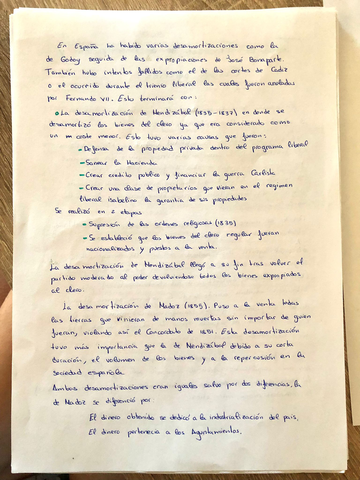 En España ha habido varias desamortizaciones como la
de Godoy seguida de las expropiaciones de José Bonaparte.
También hubo intentos fallidos como el de las cortes de Cádiz
o el ocurrido durante el trienio liberal las cuales fueron anuladas
por Fernando VII. Esto terminará con:
La desamortización de Mendizábal (1835-1837) en donde se
desamortizó los bienes del clero ya que era considerado como
un coste menor. Esto tuvo varias causas que fueron:
- Defensa de la propiedad privada dentro del programa liberal
- Sanear la Hacienda
- Crear credito publico y financiar la guerra Carlista
- Crear una clase de propietarios que vieran en el regimen
liberal isabelino la garantia de sus propiedades
Se realizó en 2 etapas
- Supresión de las ordenes religiosas (1835)
- Se estableció que los bienes del clero regular fueran
nacionalizados y puestos a la venta.
La desamortización de Mendizábal llegó a su fin tras volver el
partido moderado al poder devolviendose todos los bienes expropiados
al clero.
La desamortización de Madoz (1855). Puso a la venta todas
las tierras que vinieran de manos muertas sin importar de quien
fueran, violando así el Concordato de 1851. Esta desamortización
tuvo más importancia que la de Mendizábal debido a su corta
duración, el volumen de los bienes y a la repercusión en la
sociedad española.
Ambas desamortizaciones eran iguales salvo por dos diferencias, la
de Madoz se diferenció por
El dinero obtenido se dedicó a la industrialización del pais,
El dinero pertenecia a los Ayuntamientos.